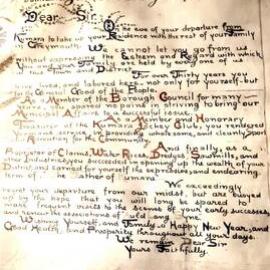 Dear Sir
On the eve of your departure from
Kumara to take up your Residence with the rest of your Family
in Greymouth, We cannot let you go from us
without expressing the Esteem and Regard with which
You and your Family are held by every one of us
For over Thirty years you
have lived, and labored here, not only for yourself, but
for the Common Good of the People.
As a Member of the Borough Council for many
years, you spared no pains in striving to bring our
Municipal Affairs to a Member and Honorary
Treasurer of the Kumara Jockey Club, you rendered
service in providing clean, and cheaply Sport
for the Community.
And finally, as a
Proprietor of Claims, Water Races, Dredges, Sawmills, and
other Industries, you succeeded in opening up the wealth of your
District, and earned for yourself the expressive, and endearing
of "The Father of Kumara"
We exceedingly
regret your departure from our midst, but are buoyed
up by the hope that you will long be spared to
make frequent visits to the Scenes of your early successes
and renew the associations of "auld lang syne"
Wishing Yourself, and Family a Happy New Year, and
Good Health, and Prosperity throughout all your days.
We remain Dear Sir
Yours Faithfully.